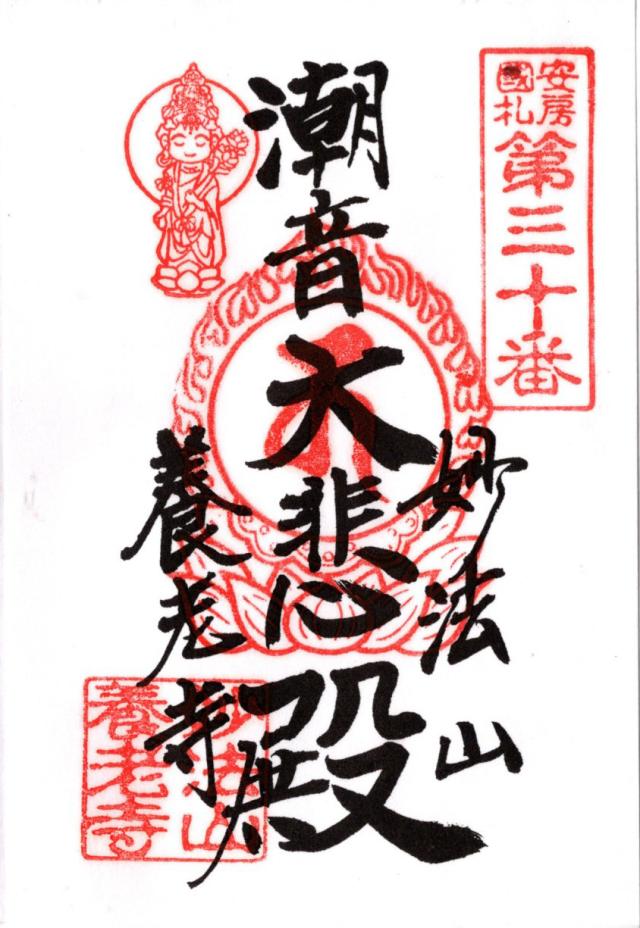 安房
國札
第三十番
妙法山
潮音大悲殿
養老寺
妙法山
養老寺